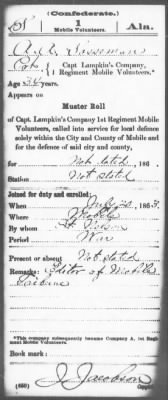 (Confederate.)
S 1 Ala.
Mobile Volunteers.
Capt. Lampkin's Company,
1 Regiment Mobile Volunteers.*
Age 34 years.
Appears on
Muster Roll
of Capt. Lampkin's Company 1st Regiment Mobile
Volunteers, called into service for local defence
solely within the City and County of Mobile and
for the defence of said city and county,
for Not dated, 186 .
Station Not stated
Joined for duty and enrolled:
When July 23, 1863.
Where Mobile
By whom
Period War
Present or absent Not stated
Remarks: Editor of Mobile
Tribune
*This company subsequently became Company A, 1st Regi-
ment Mobile Volunteers.
Book mark:
J. Jacobson
(650)